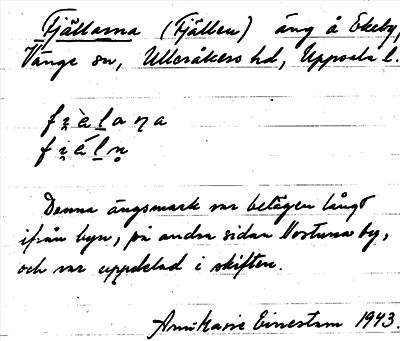 Fjällarna (Fjällen) äng å Ekeby,
Vänge sn, Ulleråkers hd, Uppsala l.
fi̯èlaṇa
fi̯élṇ
Denna ängsmark var belägen långt
ifrån byn, på andra sidan Nostuna by,
och var uppdelad i skiften.
1943.